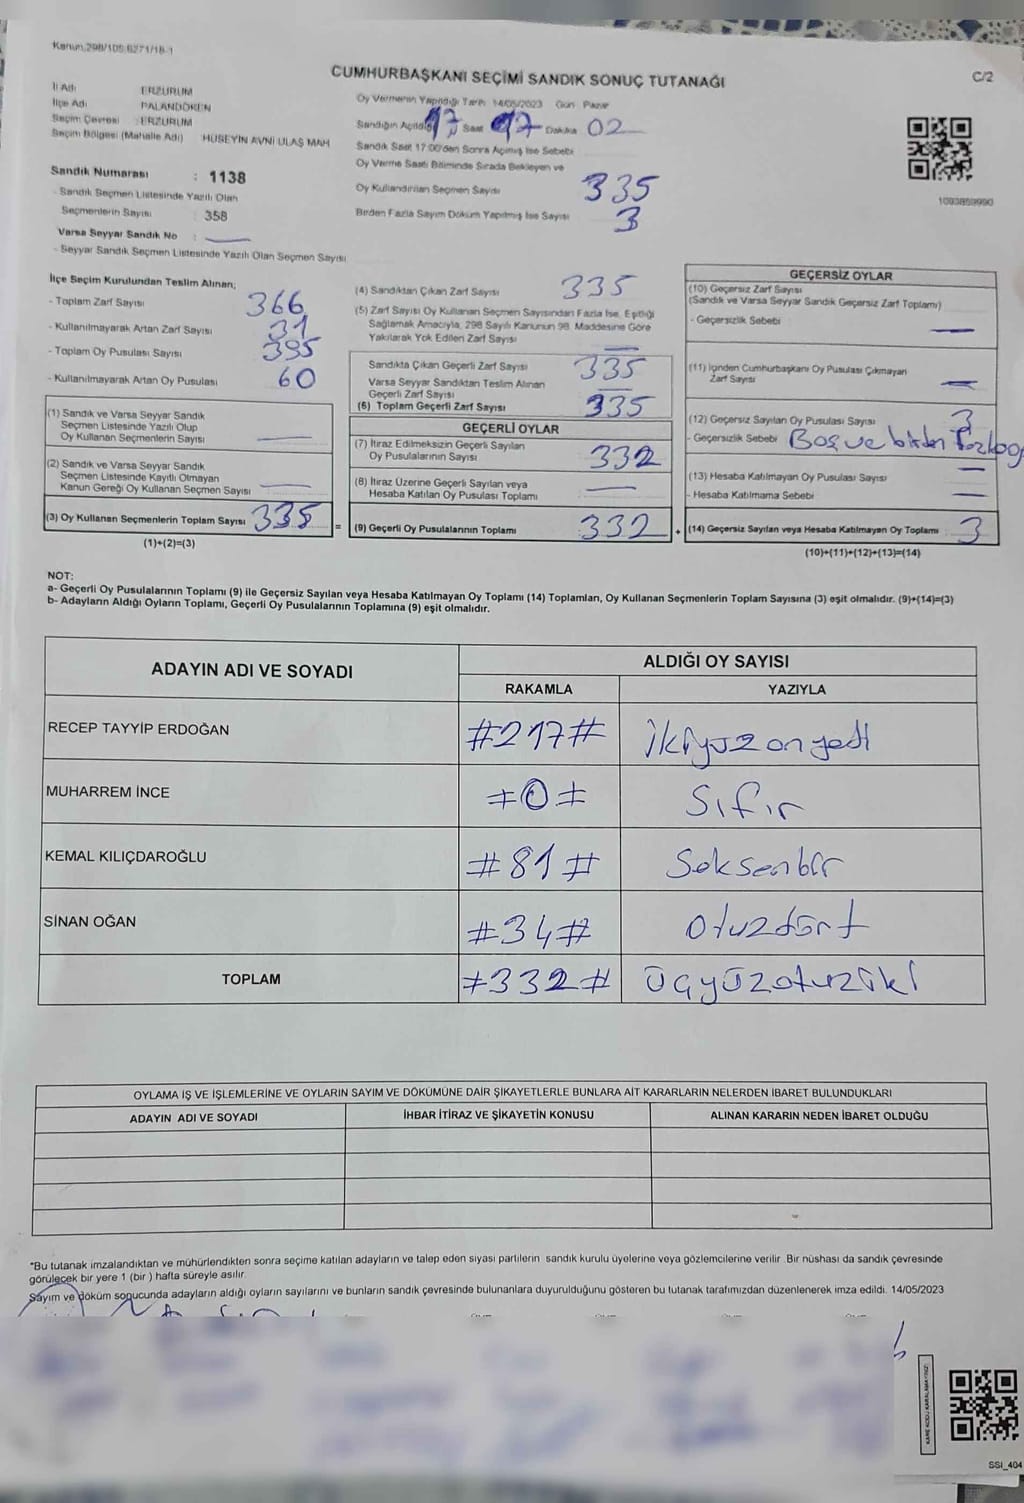 Kanun.298/105.6271/18-1
CUMHURBAŞKANI SEÇİMİ SANDIK SONUÇ TUTANAĞI
C/2
İl Adı ERZURUM
İlçe Adı PALANDÖKEN
Seçim Çevresi : ERZURUM
Seçim Bölgesi (Mahalle Adı) : HÜSEYİN AVNİ ULAŞ MAH
Sandık Numarası : 1138
- Sandık Seçmen Listesinde Yazılı Olan
Seçmenlerin Sayısı : 358
Varsa Seyyar Sandık No :
- Seyyar Sandık Seçmen Listesinde Yazılı Olan Seçmen Sayısı
Oy Vermenin Yapıldığı Tarih 14/05/2023 Gün Pazar
Sandığın Açıldığı 17 Saat 17 Dakika 02
Sandık Saat 17:00'den Sonra Açılmış İse Sebebi
Oy Verme Saati Bitiminde Sırada Bekleyen ve
Oy Kullandırılan Seçmen Sayısı 335
Birden Fazla Sayım Döküm Yapılmış İse Sayısı 3
1093859990
İlçe Seçim Kurulundan Teslim Alınan;
- Toplam Zarf Sayısı 366
- Kullanılmayarak Artan Zarf Sayısı 31
- Toplam Oy Pusulası Sayısı 395
- Kullanılmayarak Artan Oy Pusulası 60
(1) Sandık ve Varsa Seyyar Sandık
Seçmen Listesinde Yazılı Olup
Oy Kullanan Seçmenlerin Sayısı
(2) Sandık ve Varsa Seyyar Sandık
Seçmen Listesinde Kayıtlı Olmayan
Kanun Gereği Oy Kullanan Seçmen Sayısı
(3) Oy Kullanan Seçmenlerin Toplam Sayısı 335 =
(1)+(2)=(3)
(4) Sandıktan Çıkan Zarf Sayısı 335
(5) Zarf Sayısı Oy Kullanan Seçmen Sayısından Fazla İse, Eşitliği
Sağlamak Amacıyla, 298 Sayılı Kanunun 98. Maddesine Göre
Yakılarak Yok Edilen Zarf Sayısı
Sandıkta Çıkan Geçerli Zarf Sayısı 335
Varsa Seyyar Sandıktan Teslim Alınan
Geçerli Zarf Sayısı
(6) Toplam Geçerli Zarf Sayısı 335
GEÇERLİ OYLAR
(7) İtiraz Edilmeksizin Geçerli Sayılan
Oy Pusulalarının Sayısı 332
(8) İtiraz Üzerine Geçerli Sayılan veya
Hesaba Katılan Oy Pusulası Toplamı
(9) Geçerli Oy Pusulalarının Toplamı 332 +
GEÇERSİZ OYLAR
(10) Geçersiz Zarf Sayısı
(Sandık ve Varsa Seyyar Sandık Geçersiz Zarf Toplamı)
- Geçersizlik Sebebi
(11) İçinden Cumhurbaşkanı Oy Pusulası Çıkmayan
Zarf Sayısı
(12) Geçersiz Sayılan Oy Pusulası Sayısı 3
- Geçersizlik Sebebi Boş ve birden
(13) Hesaba Katılmayan Oy Pusulası Sayısı
- Hesaba Katılmama Sebebi
(14) Geçersiz Sayılan veya Hesaba Katılmayan Oy Toplamı 3
(10)+(11)+(12)+(13)=(14)
NOT:
a- Geçerli Oy Pusulalarının Toplamı (9) ile Geçersiz Sayılan veya Hesaba Katılmayan Oy Toplamı (14) Toplamları, Oy Kullanan Seçmenlerin Toplam Sayısına (3) eşit olmalıdır. (9)+(14)=(3)
b- Adayların Aldığı Oyların Toplamı, Geçerli Oy Pusulalarının Toplamına (9) eşit olmalıdır.
ADAYIN ADI VE SOYADI
ALDIĞI OY SAYISI
RAKAMLA YAZIYLA
RECEP TAYYİP ERDOĞAN #217# İkiyüz onyedi
MUHARREM İNCE #0# Sıfır
KEMAL KILIÇDAROĞLU #81# Seksenbir
SİNAN OĞAN #34# Otuzdört
TOPLAM #332# Üçyüzotuziki
OYLAMA İŞ VE İŞLEMLERİNE VE OYLARIN SAYIM VE DÖKÜMÜNE DAİR ŞİKAYETLERLE BUNLARA AİT KARARLARIN NELERDEN İBARET BULUNDUKLARI
ADAYIN ADI VE SOYADI İHBAR İTİRAZ VE ŞİKAYETİN KONUSU ALINAN KARARIN NEDEN İBARET OLDUĞU
*Bu tutanak imzalandıktan ve mühürlendikten sonra seçime katılan adayların ve talep eden siyasi partilerin sandık kurulu üyelerine veya gözlemcilerine verilir. Bir nüshası da sandık çevresinde
görülecek bir yere 1 (bir ) hafta süreyle asılır.
Sayım ve döküm sonucunda adayların aldığı oyların sayılarını ve bunların sandık çevresinde bulunanlara duyurulduğunu gösteren bu tutanak tarafımızdan düzenlenerek imza edildi. 14/05/2023
KARE KODU KARALAMAYINIZ!
SSI_404